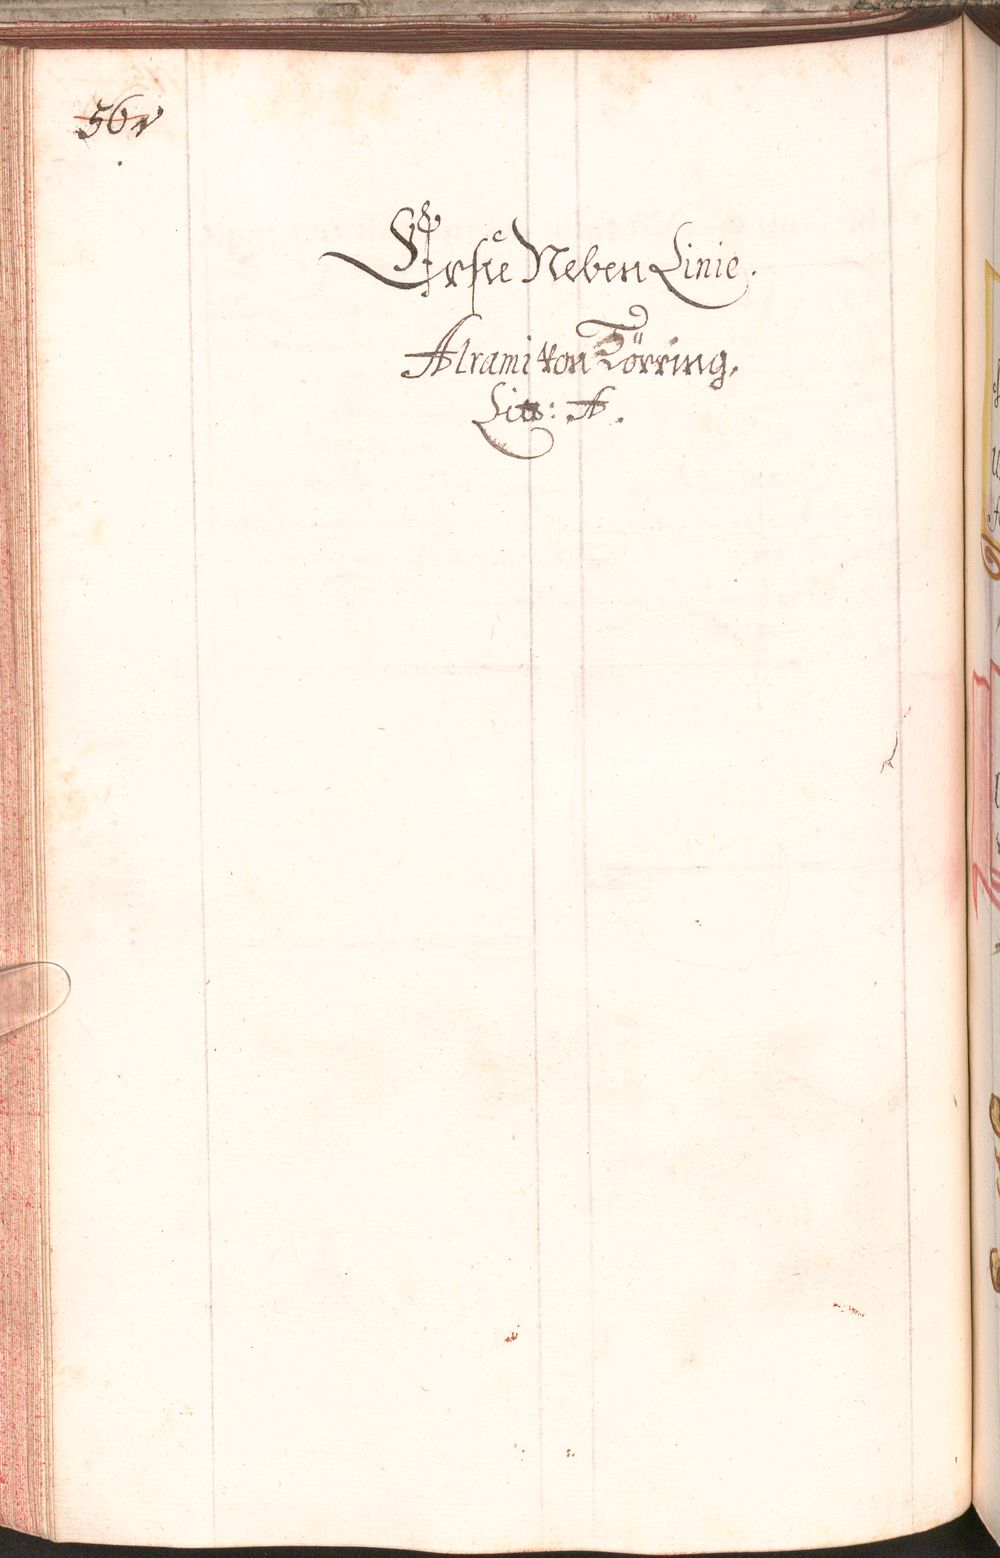 56v
Erste Neben Linie.
Alrami von Törring,
Litt: A.